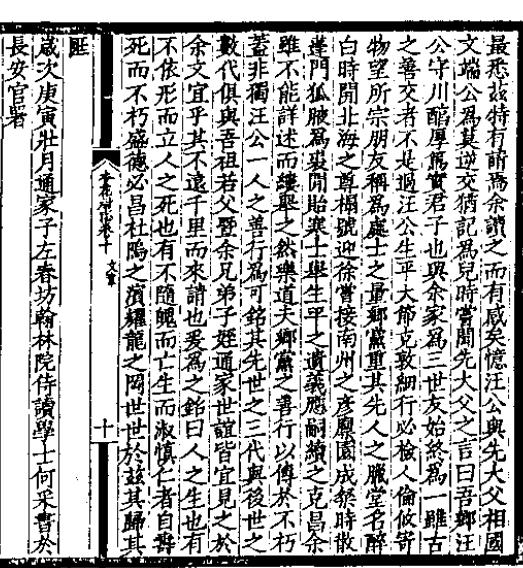 最悉茲特有請焉余讀之而有感矣憶汪公與先大父相國
文端公爲莫逆交猶記爲兒時嘗聞先大父之言曰吾鄉汪
公守川醕厚篤實君子也與余家爲三世友始終爲一雖古
之善交者不是過汪公生平大節克敦細行必檢人倫攸寄
物望所宗朋友稱爲廣士之量鄉黨重其先人之驥堂名醉
白時開北海之尊榻號迎徐嘗接南州之彦廪園成粲時散
蓬門狐腋爲裘開貽寒士舉生平之遺義應嗣續之克昌余
雖不能詳述而縷舉之然樂道夫鄉黨之善行以傳於不朽
蓋非獨汪公一人之善行爲可銘其先世之三代與後世之
數代俱與吾祖若父暨余兄弟子姪通家世誼皆宜見之於
余文宜乎其不遠千里而來請也爰爲之銘曰人之生也有
不依形而立人之死也有不隨魄而亡生而淑慎仁者自壽
死而不朽盛德必昌杜鵑之濱耀龍之岡世世於茲其歸其
卷十 文章
十
旺
歲次庚寅壯月通家子左春坊翰林院侍讀學士何采書於
長安官署